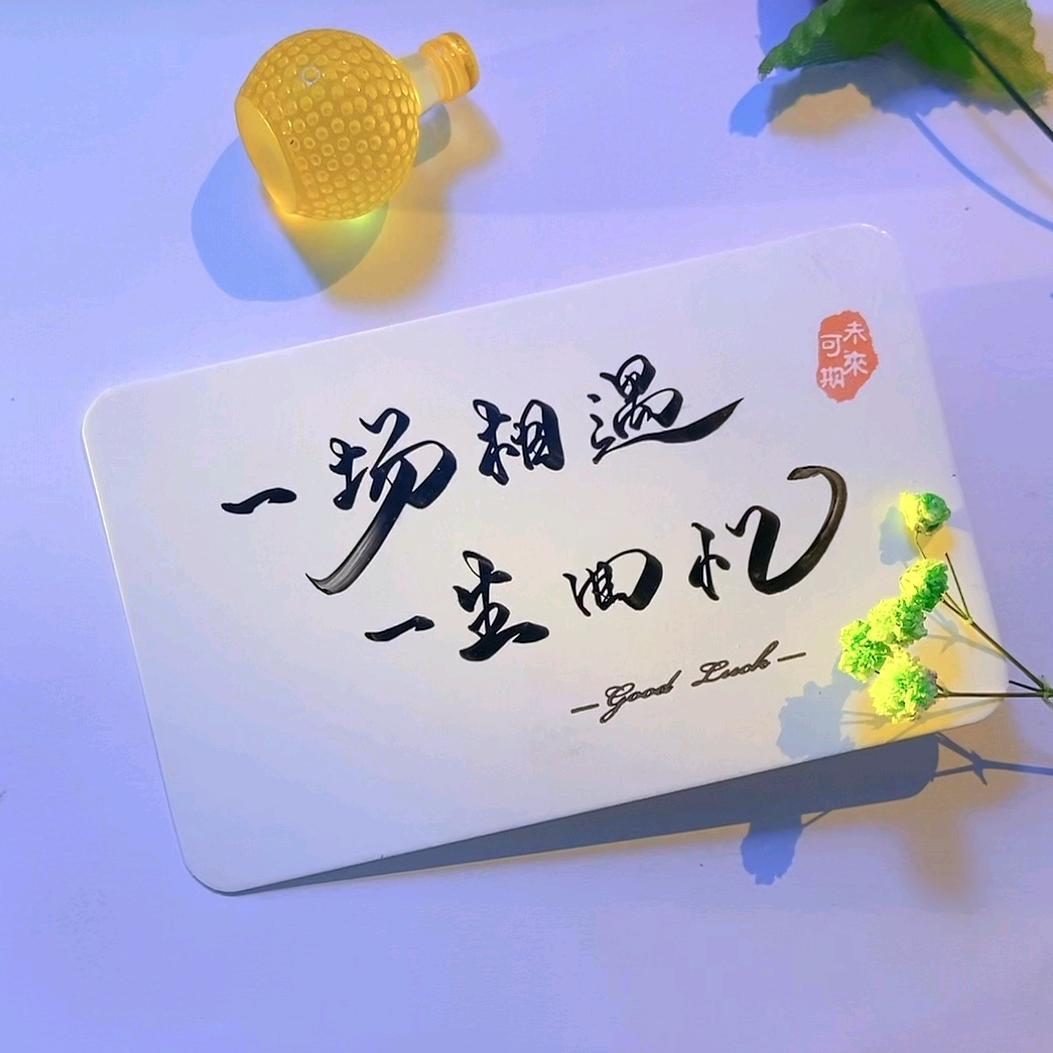 一场相遇
一生回忆
—Good Luck—
未來
可期